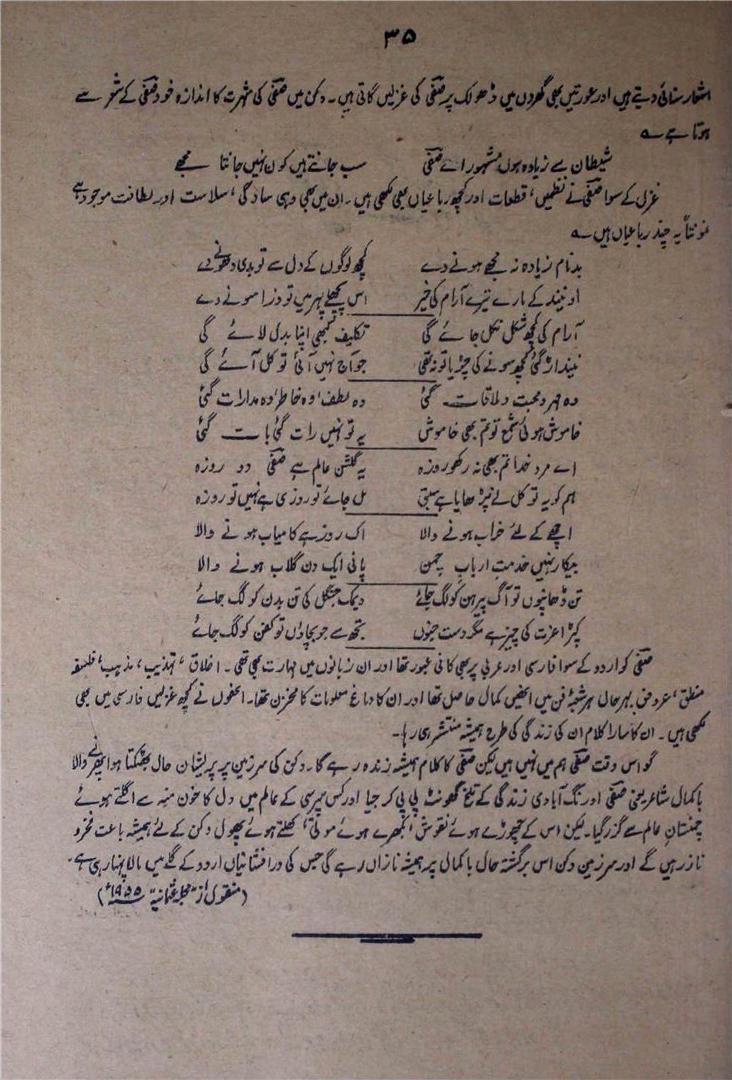 ۳۵
اشعار سنائی دیتے ہیں اور عورتیں بھی گھروں میں ڈھولک پر صفی کی غزلیں گاتی ہیں۔ دکن میں صفی کی شہرت کا اندازہ خود صفی کے شعر سے
ہوتا ہے ؎
شیطان سے زیادہ ہوں مشہور اے صفی سب جانتے ہیں کون نہیں جانتا مجھے
غزل کے سوا صفی نے نظمیں، قطعات اور کچھ رباعیاں بھی لکھی ہیں۔ ان میں بھی وہی سادگی، سلاست اور لطافت موجود ہے
نمونتاً یہ چند رباعیاں ہیں ؎
بدنام زیادہ نہ مجھے ہونے دے کچھ لوگوں کے دل سے تو بدی دھونے دے
او نیند کے مارے تیرے آرام کی خیر اس پچھلے پہر میں تو ذرا سونے دے
آرام کی کچھ شکل نکل جائے گی تکلیف کبھی اپنا بدل لائے گی
نیند اڑ گئی کچھ سونے کی چڑیا تو نہ تھی جو آج نہیں آئی تو کل آئے گی
وہ مہر و محبت و ملاقات گئی وہ لطف وہ خاطر وہ مدارات گئی
خاموش ہوئی شمع تو تم بھی خاموش یہ تو نہیں رات گئی بات گئی
اے مرد خدا تم بھی نہ رکھو روزہ یہ گلشن عالم ہے صفی دو روزہ
ہم کو یہ توکل نے پڑھایا ہے سبق مل جائے تو روزی ہے نہیں تو روزہ
اچھے کے لئے خراب ہونے والا اک روز ہے کامیاب ہونے والا
بیکار نہیں خدمتِ اربابِ چمن پانی ایک دن گلاب ہونے والا
تن ڈھانپوں تو آگ پیرہن کو لگ جائے دیمک جنگل کی تن بدن کو لگ جائے
کپڑا عزت کی چیز ہے مگر دست جنوں تجھ سے جو بچاؤں تو کفن کو لگ جائے
صفی کو اردو کے سوا فارسی اور عربی پر بھی کافی عبور تھا اور ان زبانوں میں مہارت بھی تھی۔ اخلاق، تہذیب، مذہب، فلسفہ
منطق، عروض بہر حال ہر شعبۂ فن میں انھیں کمال حاصل تھا اور ان کا دماغ معلومات کا مخزن تھا۔ انھوں نے کچھ غزلیں فارسی میں بھی
لکھی ہیں۔ ان کا سارا کلام ان کی زندگی کی طرح ہمیشہ منتشر ہی رہا۔
گو اس وقت صفی ہم میں نہیں ہیں لیکن صفی کا کلام ہمیشہ زندہ رہے گا۔ دکن کی سرزمین پر پریشان حال بھٹکتا ہوا پھرنے والا
باکمال شاعر یعنی صفی اورنگ آبادی زندگی کے تلخ گھونٹ پی پی کر جیا اور کس مپرسی کے عالم میں دل کا خون منہ سے اگلتے ہوئے
چمنستانِ عالم سے گزر گیا۔ لیکن اس کے چھوڑے ہوئے نقوش، بکھرے ہوئے موتی، کھلتے ہوئے پھول دکن کے لئے ہمیشہ باعث فخر و
ناز رہیں گے اور سرزمین دکن اس برگشتہ حال باکمال پر ہمیشہ نازاں رہے گی جس کی درافشانیاں اردو کے گلے میں مالا پہنا رہی ہے۔
(منقول از "مجلہ عثمانیہ" ۱۹۵۵ء)